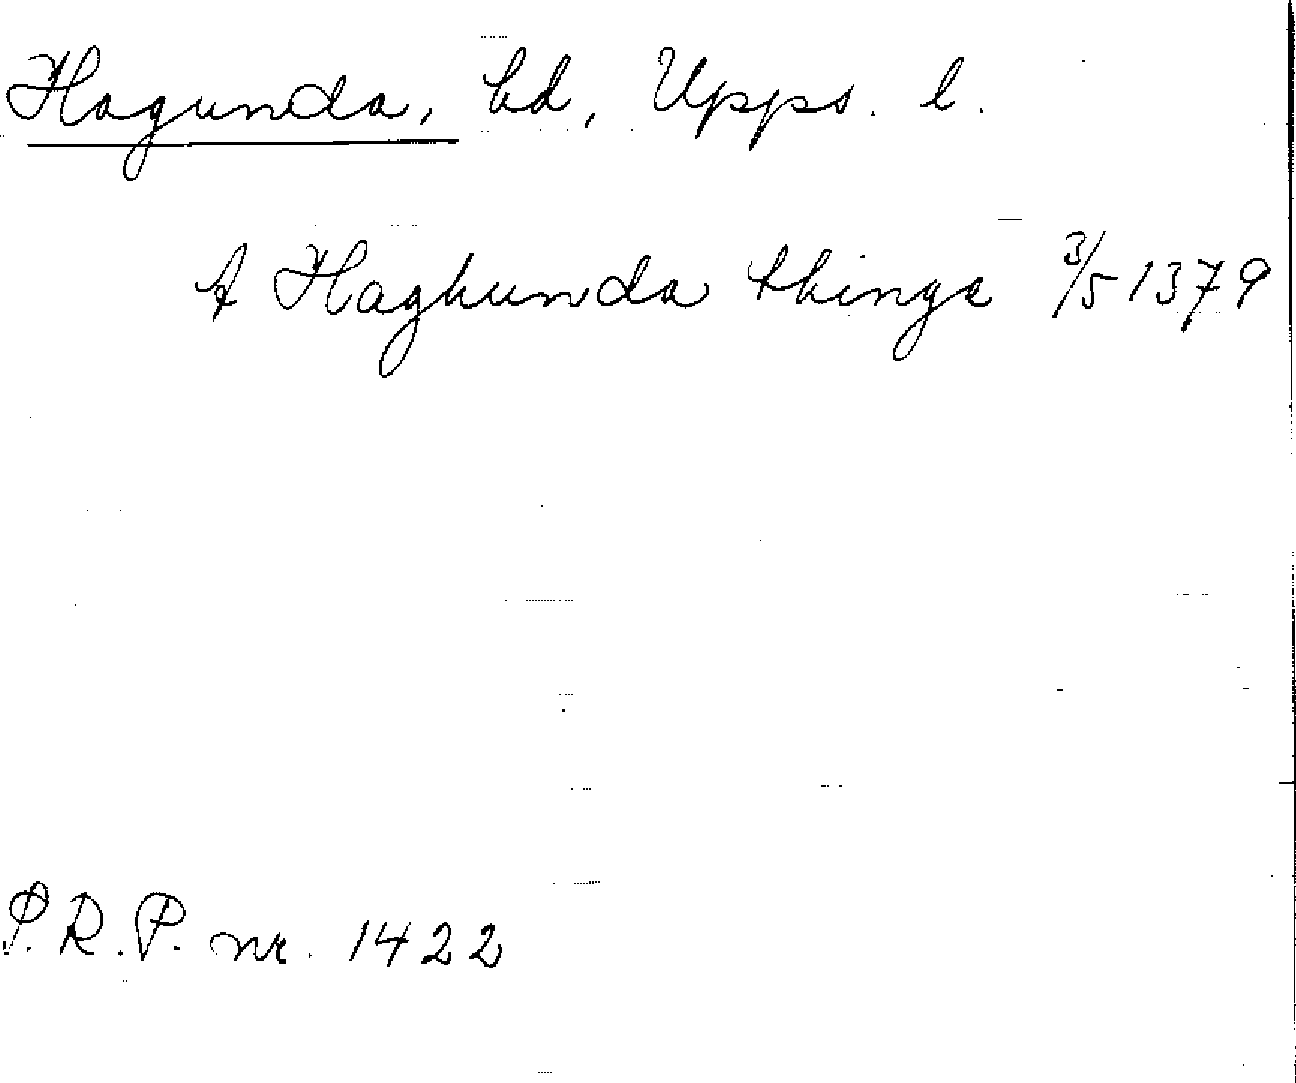 Hagunda, hd, Upps. l.
A Haghunda thinge 3/5 1379
S.R.P. nr. 1422